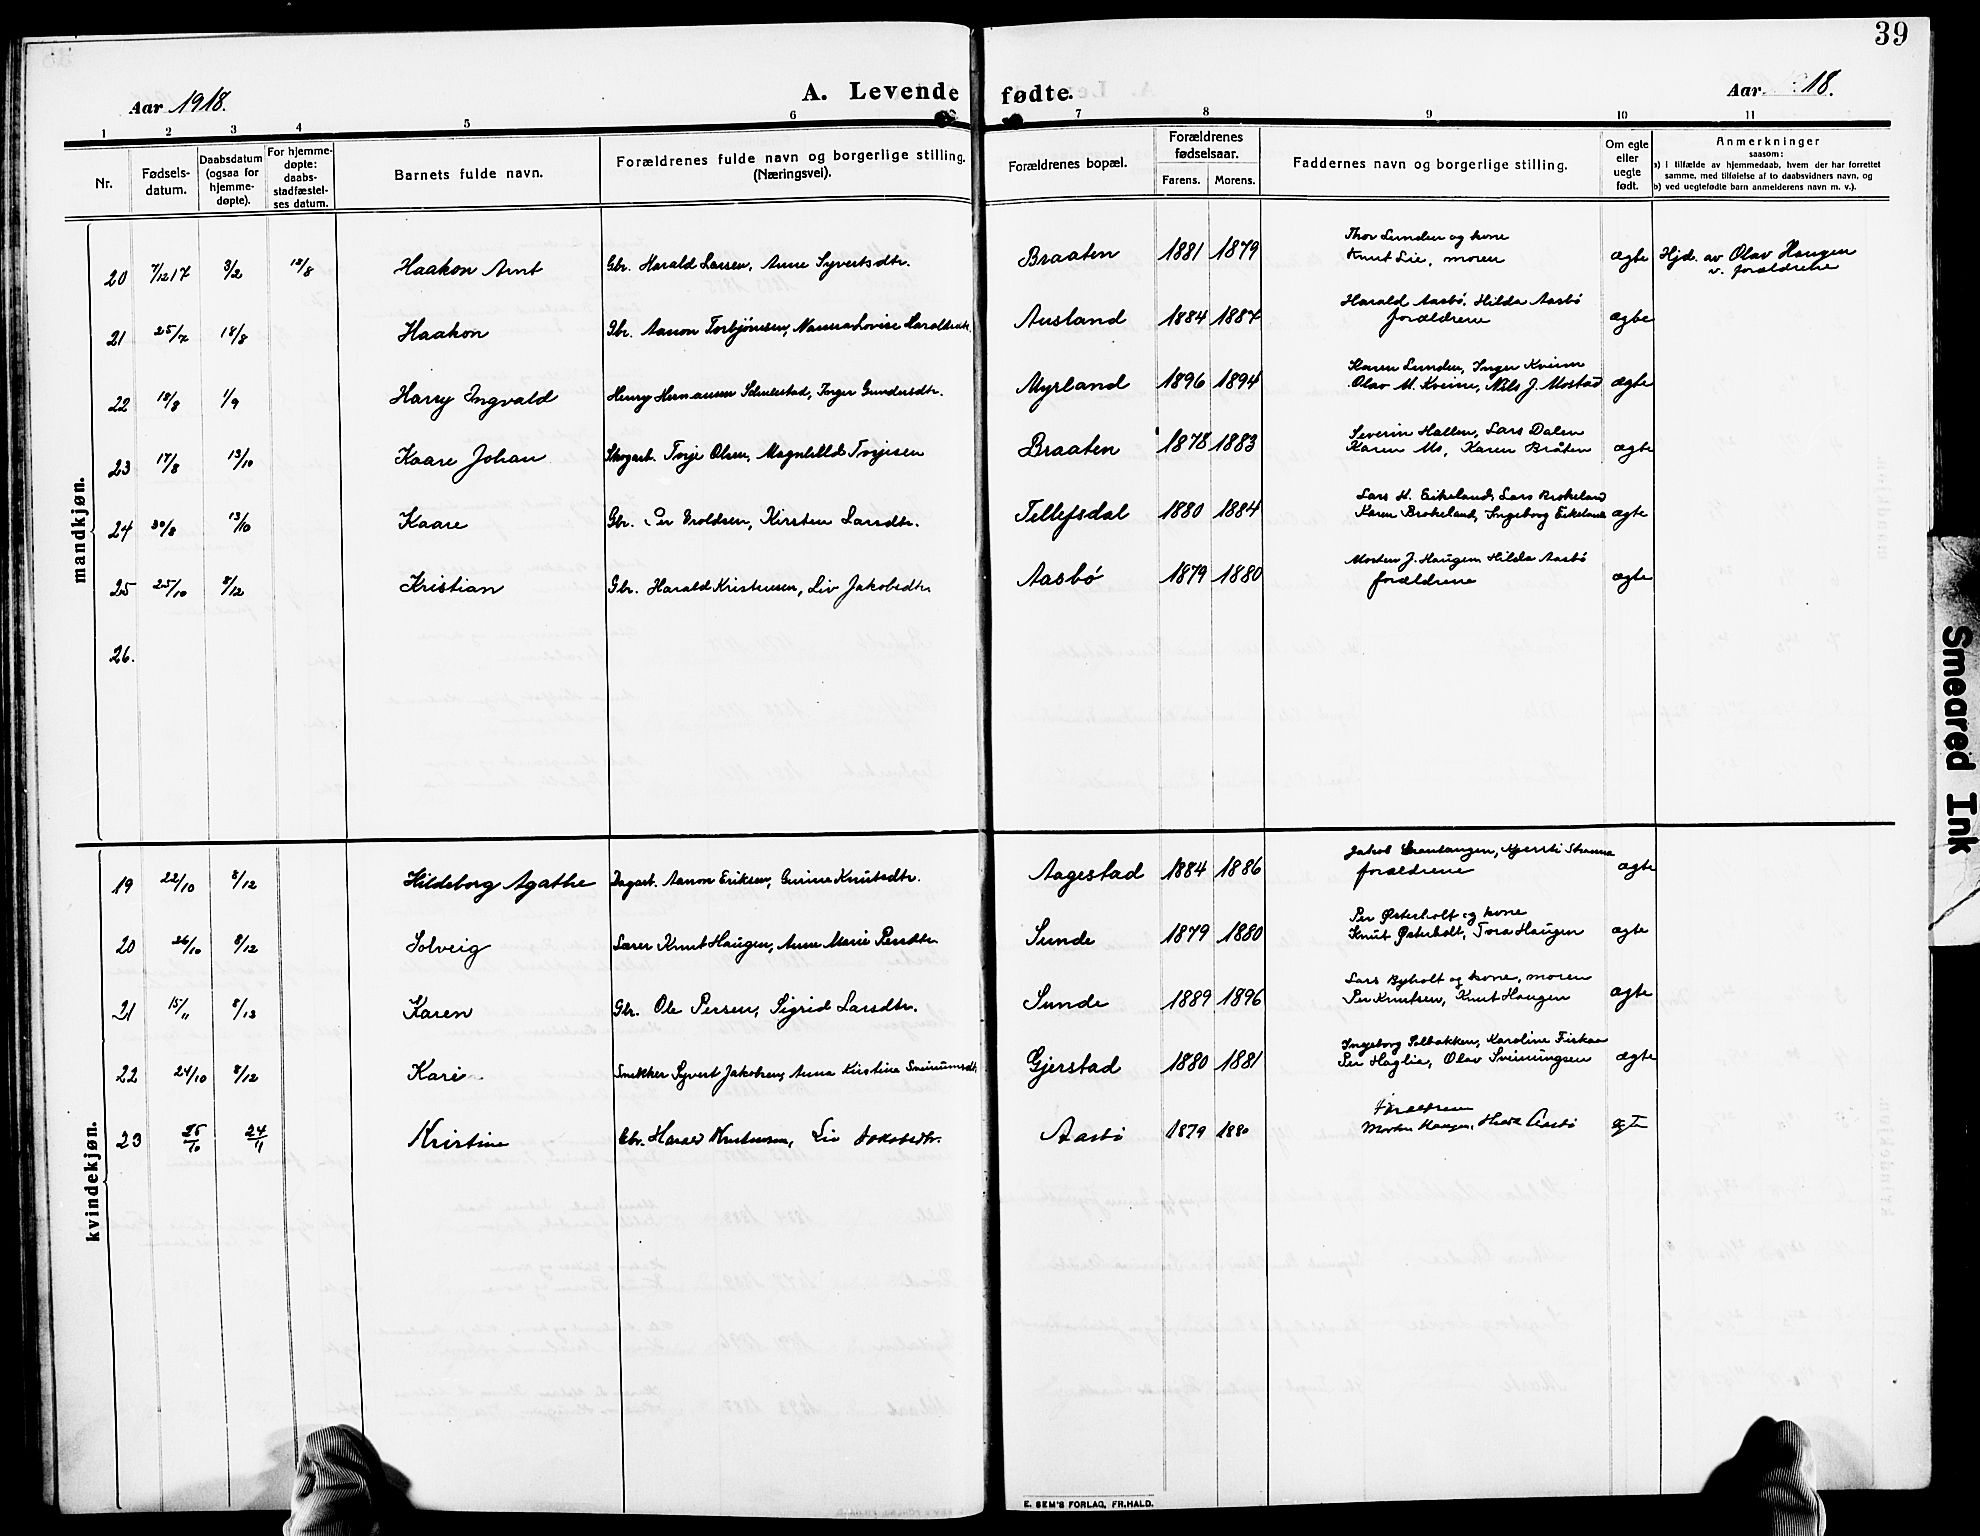 39
Aar 1918.
A. Levende fødte.
Aar 18.
1 2 3 4 5 6 7 8 9 10 11
Nr.
Fødsels-
datum.
Daabsdatum
(ogsaa for
hjemme-
døpte).
For hjemme-
døpte:
daabs-
stadfæstel-
ses datum.
Barnets fulde navn.
Forældrenes fulde navn og borgerlige stilling.
(Næringsvei).
Forældrenes bopæl.
Forældrenes
fødselsaar.
Farens. Morens.
Faddernes navn og borgerlige stilling.
Om egte
eller
uegte
født.
Anmerkninger
saasom:
a) i tilfælde av hjemmedaab, hvem der har forrettet
samme, med tilføielse af to daabsvidners navn, og
b) ved uegtefødte barn anmelderens navn m. v.).
mandkjøn.
Thor Lunden og kone
20 7/12 17 3/2 18/8 Haakon Arnt Gbr. Harald Larsen, Anne Syvertsdtr. Braaten 1881 1879 Knut Lie, moren ægte Hjd. av Olav Haugen
v. forældrene
Harald Aasbø, Hilda Aasbø
21 25/7 18/8 Haakon Gbr. Aanon Torbjørnsen, Nanna Lovise Ausland 1884 1887 forældrene ægte
Karen Lunden, Inger Kveim
22 18/8 1/9 Harry Ingvald Henry Hermansen, Inger Gundersdtr. Myrland 1896 1894 Olav M. Kveim, Nils J. Mostad ægte
Severin Hallen, Lars Dalen
23 17/8 13/10 Kaare Johan Skogarb. Torje Olsen, Magnhild Torjesen Braaten 1878 1883 Karen Mo, Karen Bråten ægte
Lars H. Eikeland, Lars Brokeland
24 30/8 13/10 Kaare Gbr. Per Kirsten Larsdtr. Tellefsdal 1880 1884 Karen Brokeland, Ingeborg Eikeland ægte
Morten J. Haugen, Hilda Aasbø
25 25/10 8/12 Kristian Gbr. Harald Kristensen, Liv Jakobsdtr. Aasbø 1879 1880 forældrene ægte
26.
kvindekjøn.
Jakob Kjersti
19 22/10 8/12 Hildeborg Agathe Dagarb. Aanon Eriksen, Gurine Knutsdtr. Aagestad 1884 1886 forældrene ægte
Per Østerholt og kone
20 26/10 8/12 Solveig Lærer Knut Haugen, Anne Marie Persdtr. Sunde 1879 1880 Knut Østerholt, Tora Haugen ægte
Lars Byholt og kone, moren
21 15/11 8/12 Karen Gbr. Ole Persen, Sigrid Larsdtr. Sunde 1889 1896 Per Knutsen, Knut Haugen ægte
Ingeborg Solbakken, Karoline
22 24/10 8/12 Kari Snekker Syvert Jakobsen, Anna Kirstine Gjerstad 1880 1881 Per Haglia, Olav Sveinungsen ægte
Forældrene
23 25/10 24/11 Kristine Gbr. Harald Kristensen, Liv Jakobsdtr. Aasbø 1879 1880 Morten Haugen, Hilda Aasbø ægte
E. SEM'S FORLAG, FR.HALD.
Smeared Ink